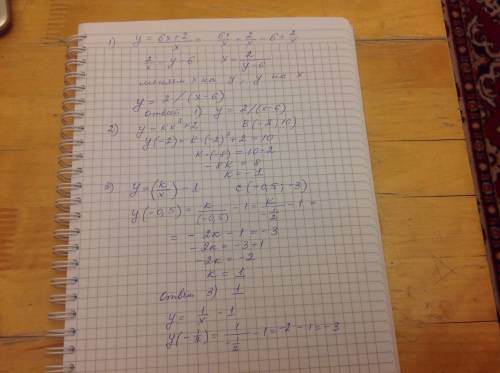 1) y = (6x+2)/x = 6x/x + 2/x - 6+ 2/x
2/x y-6 x = 2/(y-6)
меняем x на y, y на x
y = 2/(x-6)
ответ 1) y = 2/(x-6)
2) y = kx³+2 B(-2;10)
y(-2) = k·(-2)³+2 = 10
k·(-8) = 10-2
-8k = 8
k = -1
3) y = (k/x) - 1 C(-0,5; -3)
y(-0,5) = k/(-0,5) - 1 = k/(-1/2) - 1 =
= -2k - 1 = -3
-2k = -3+1
-2k = -2
k = 1
Ответ 3) 1
y = 1/x - 1
y(-1/2) = 1/(-1/2) - 1 = -2 - 1 = -3